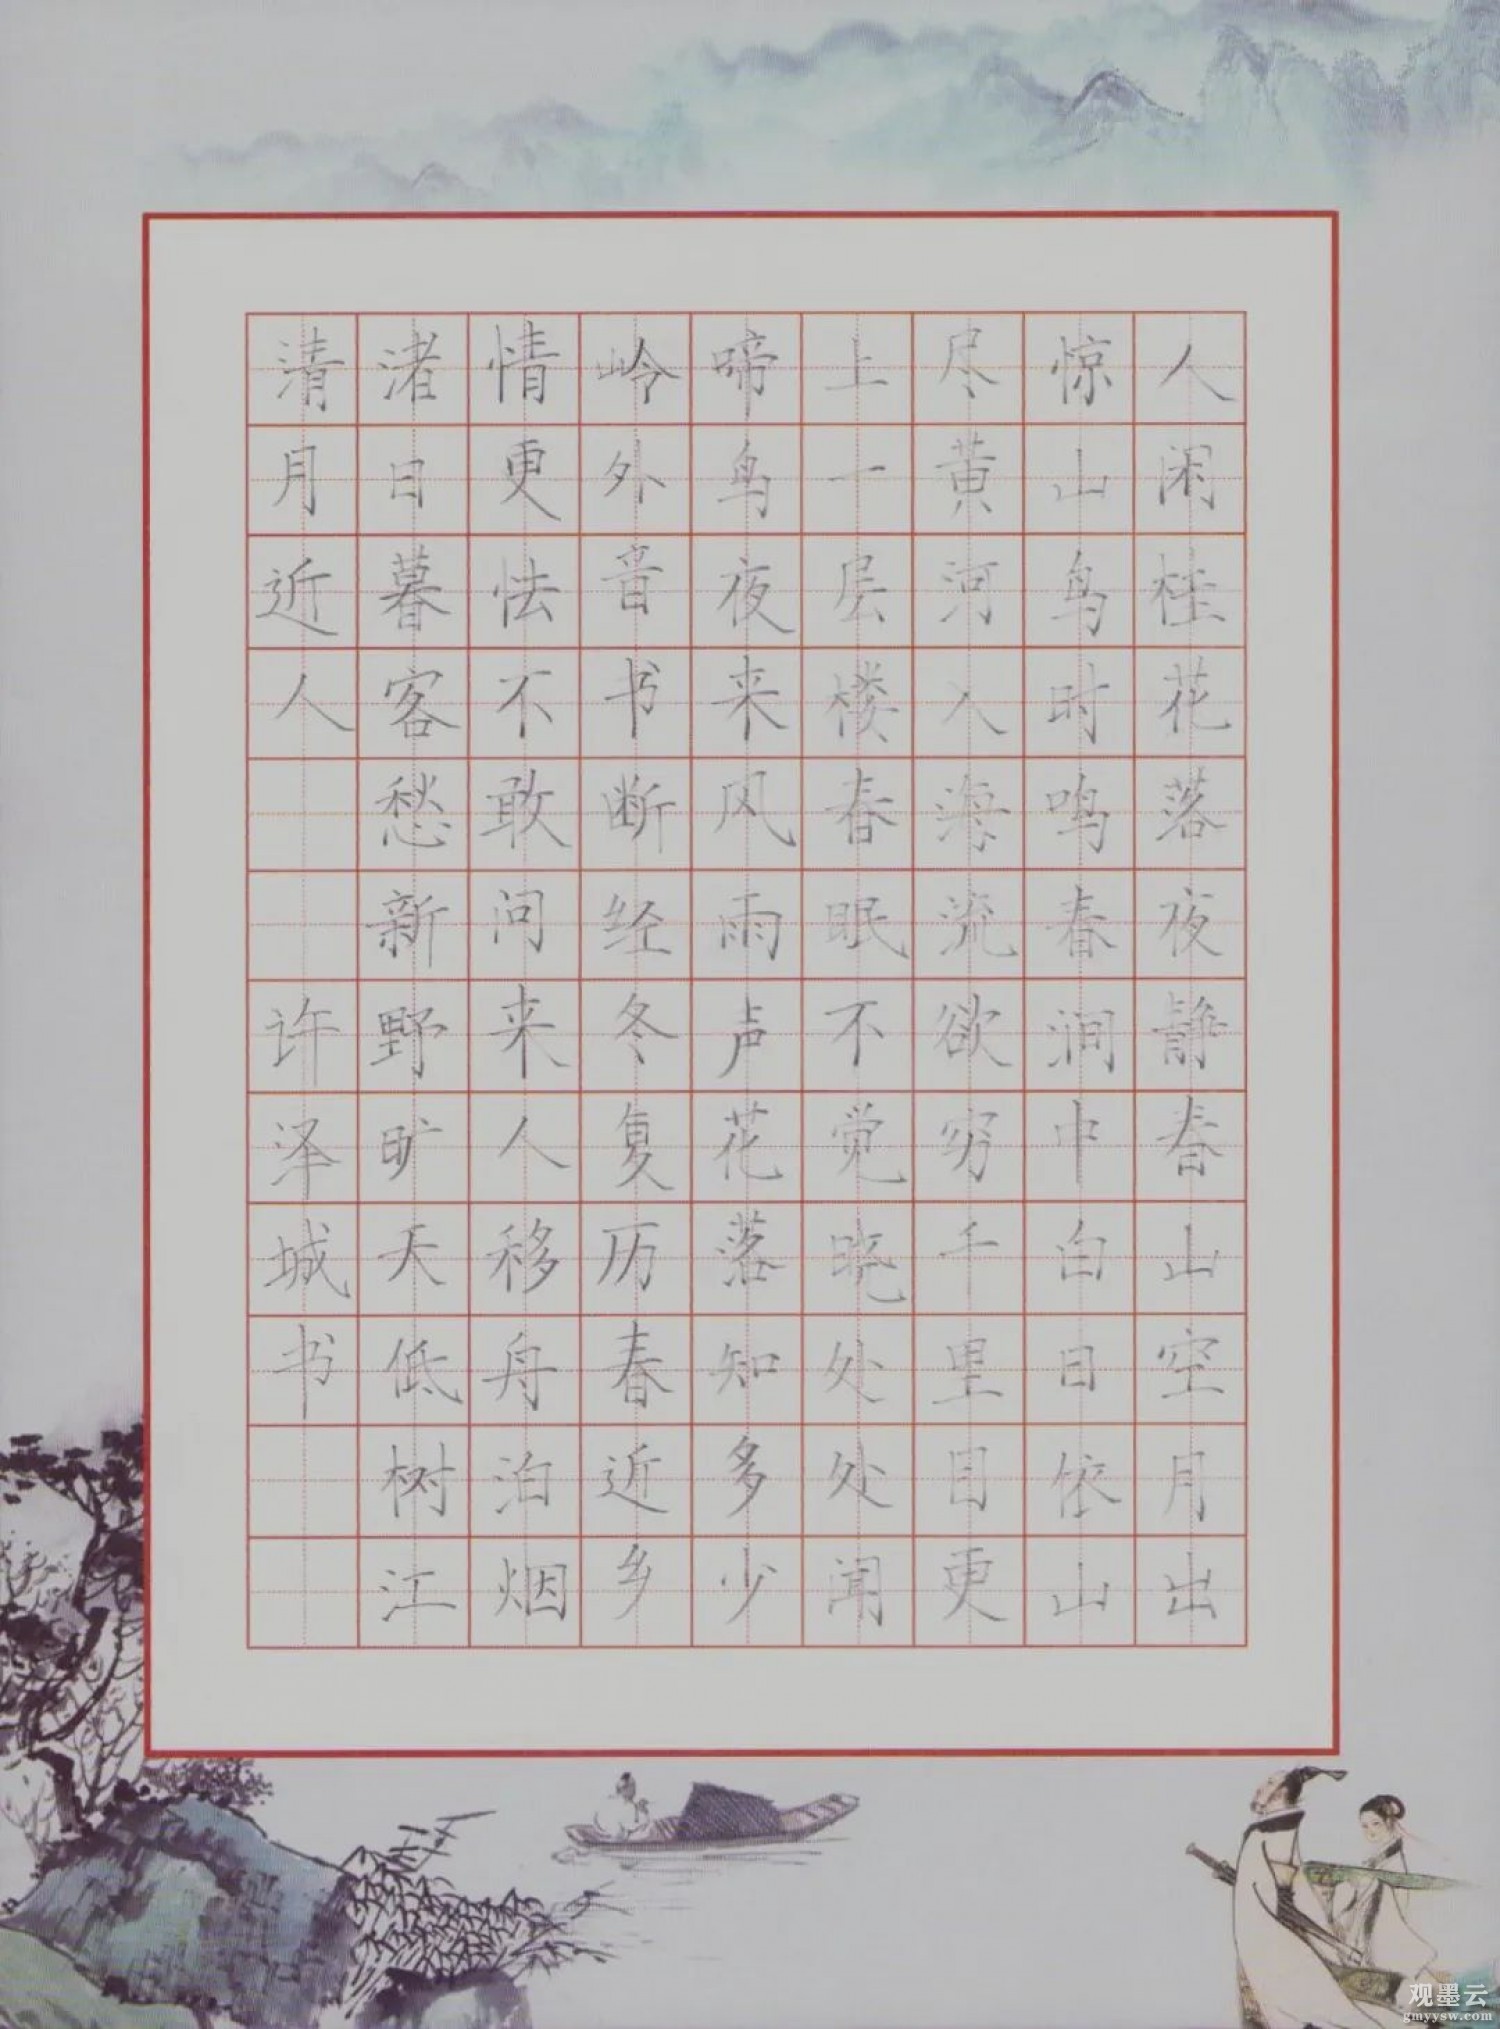 人闲桂花落夜静春山空月出
惊山鸟时鸣春涧中白日依山
尽黄河入海流欲穷千里目更
上一层楼春眠不觉晓处处闻
啼鸟夜来风雨声花落知多少
岭外音书断经冬复历春近乡
情更怯不敢问来人移舟泊烟
渚日暮客愁新野旷天低树江
清月近人 许泽城书
观墨云
gmyysw.com